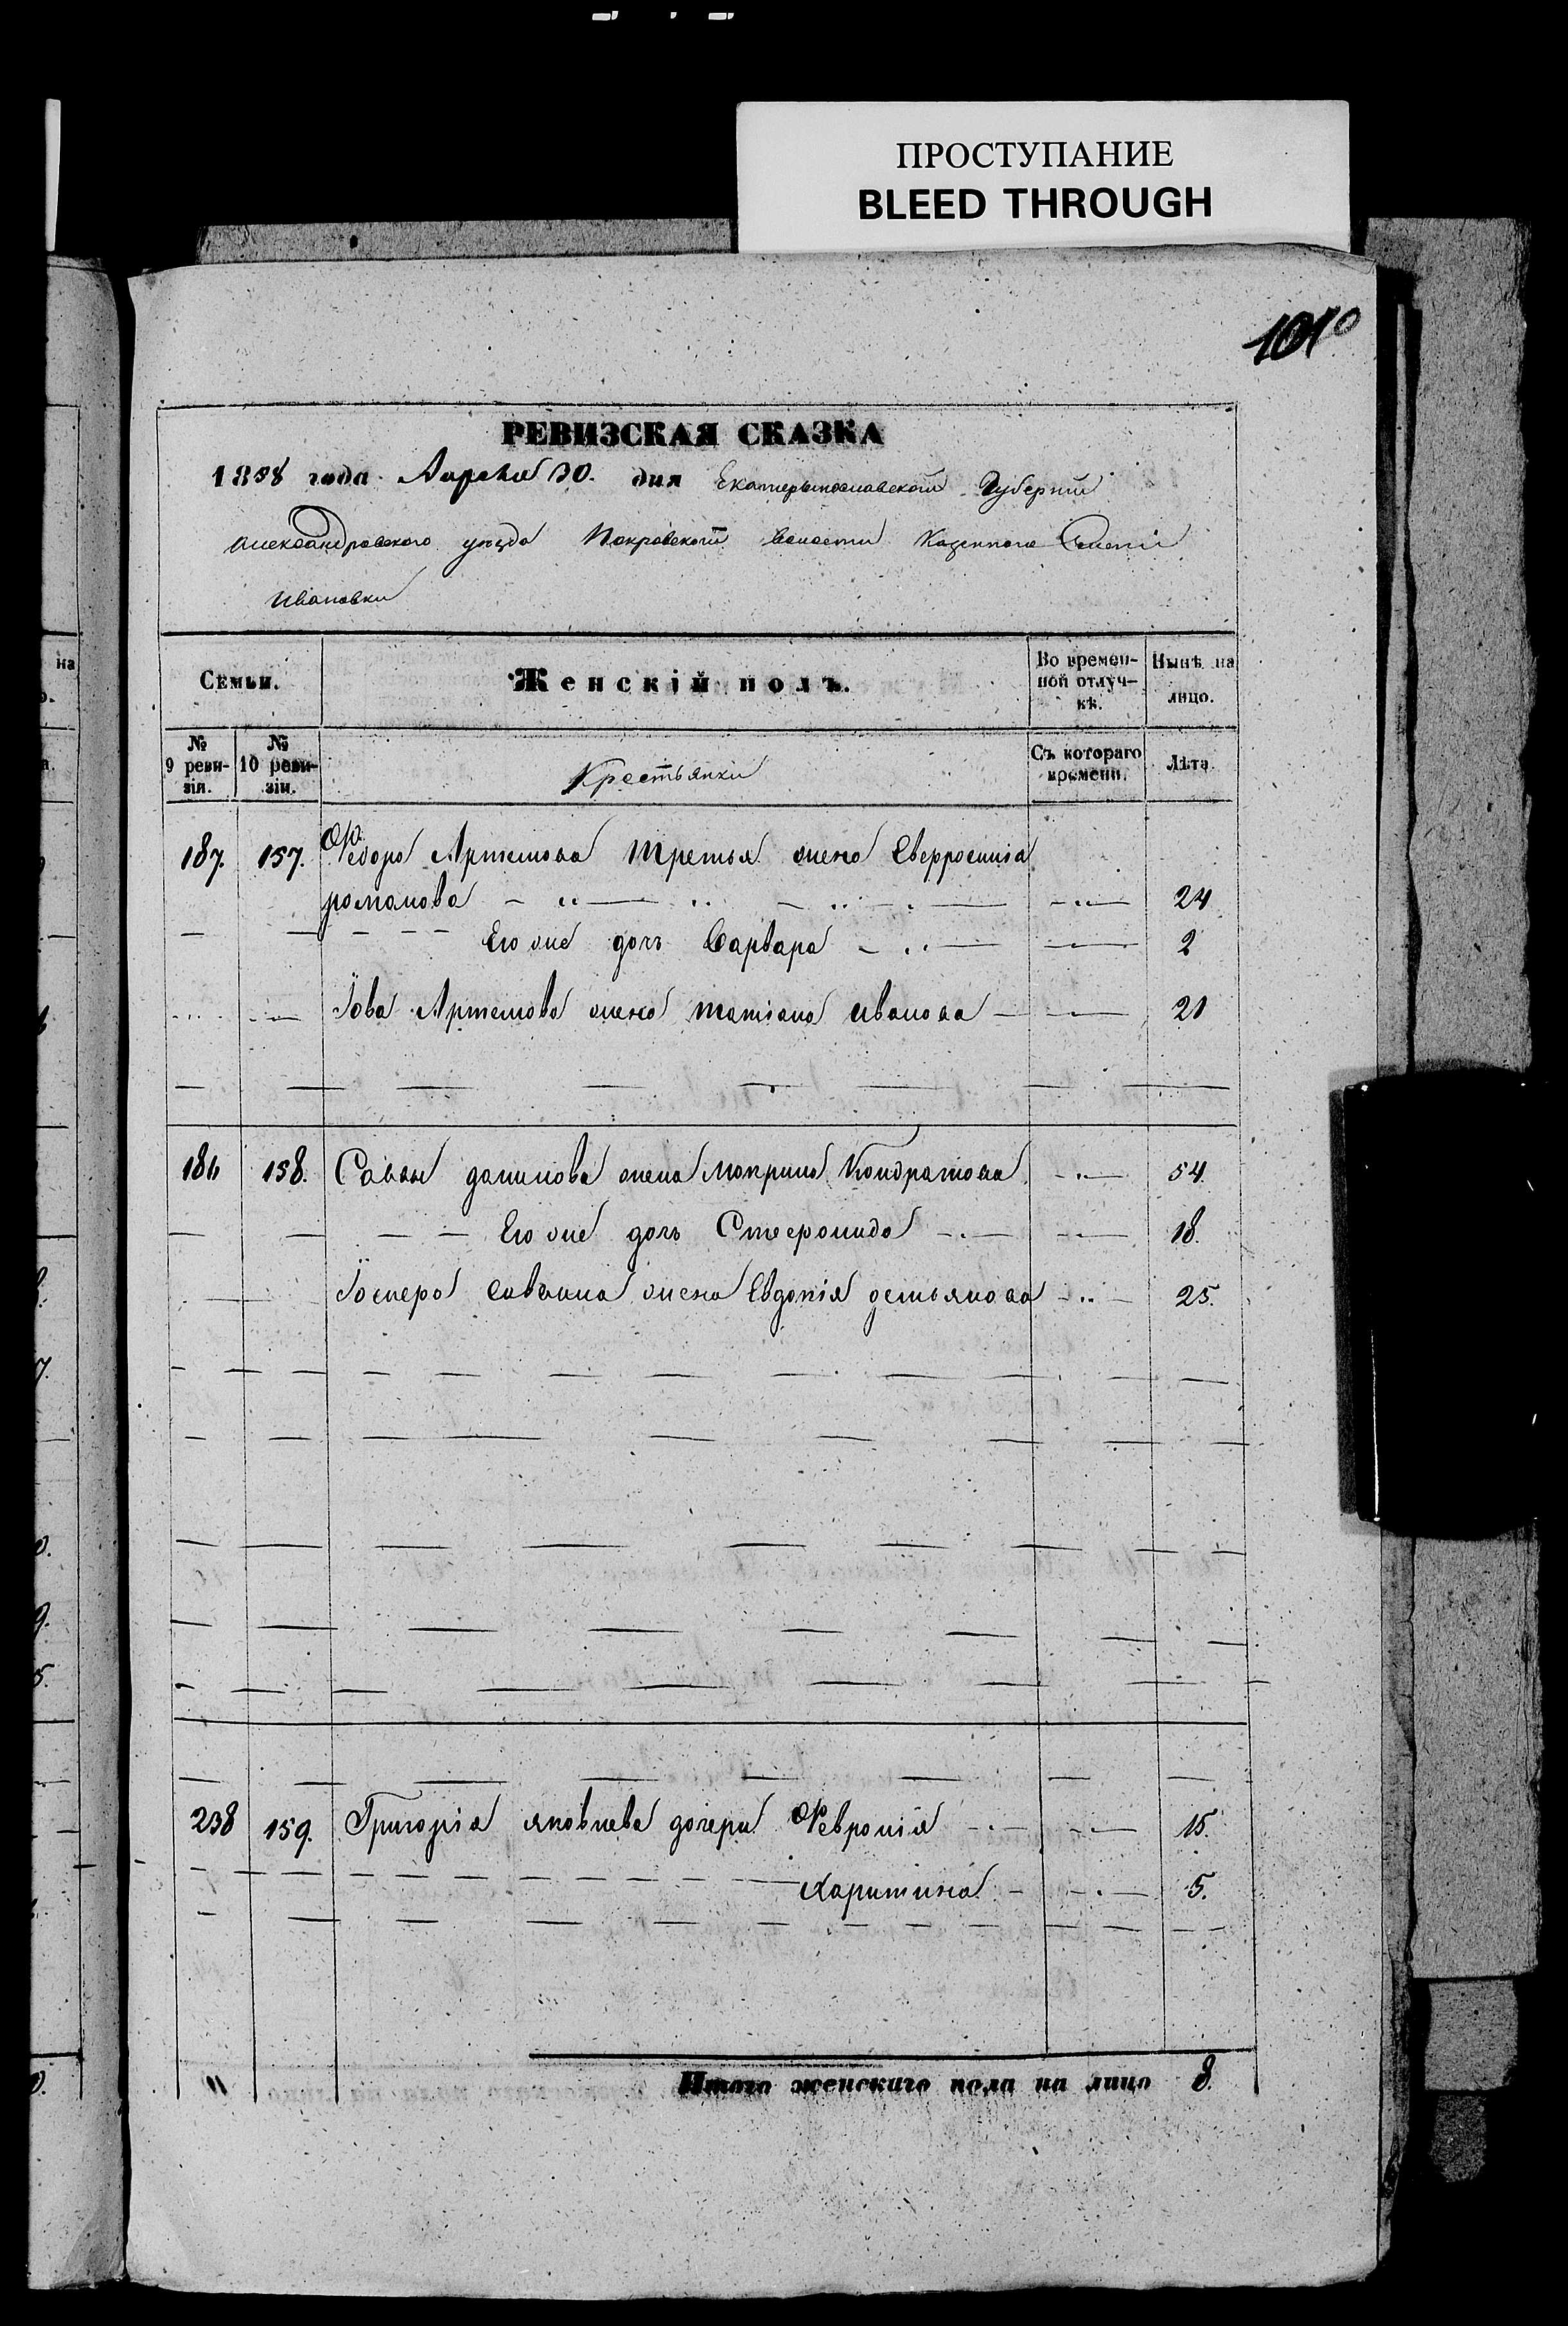 ПРОСТУПАНИЕ
BLEED THROUGH
101
РЕВИЗСКАЯ СКАЗКА
1858 года Апреля 30. дня Екатеринославской Губернии
Александровского уезда Покровской Волости Казенного Селенія
Ивановки
Семьи. Женскій полъ. Во времен-ной отлуч-кѣ. Нынѣ на лицо.
№ 9 реви-зіи. № 10 реви-зіи. Крестьянки Съ котораго времени. Лѣта.
187. 157. Федора Артемова третья жена Евфросинія
романова 24
Его же дочь Варвара 2
Іова Артемова жена татіана иванова 21
186 158. Саввы данилова жена Макрина Кондратова 54.
Его же дочь Стефанида 18.
Іосифа саввина жена Евдокія демьянова 25.
238 159. Григорія яковлева дочери Февронія 15.
Харитина 5.
Итого женскаго пола на лицо 8.